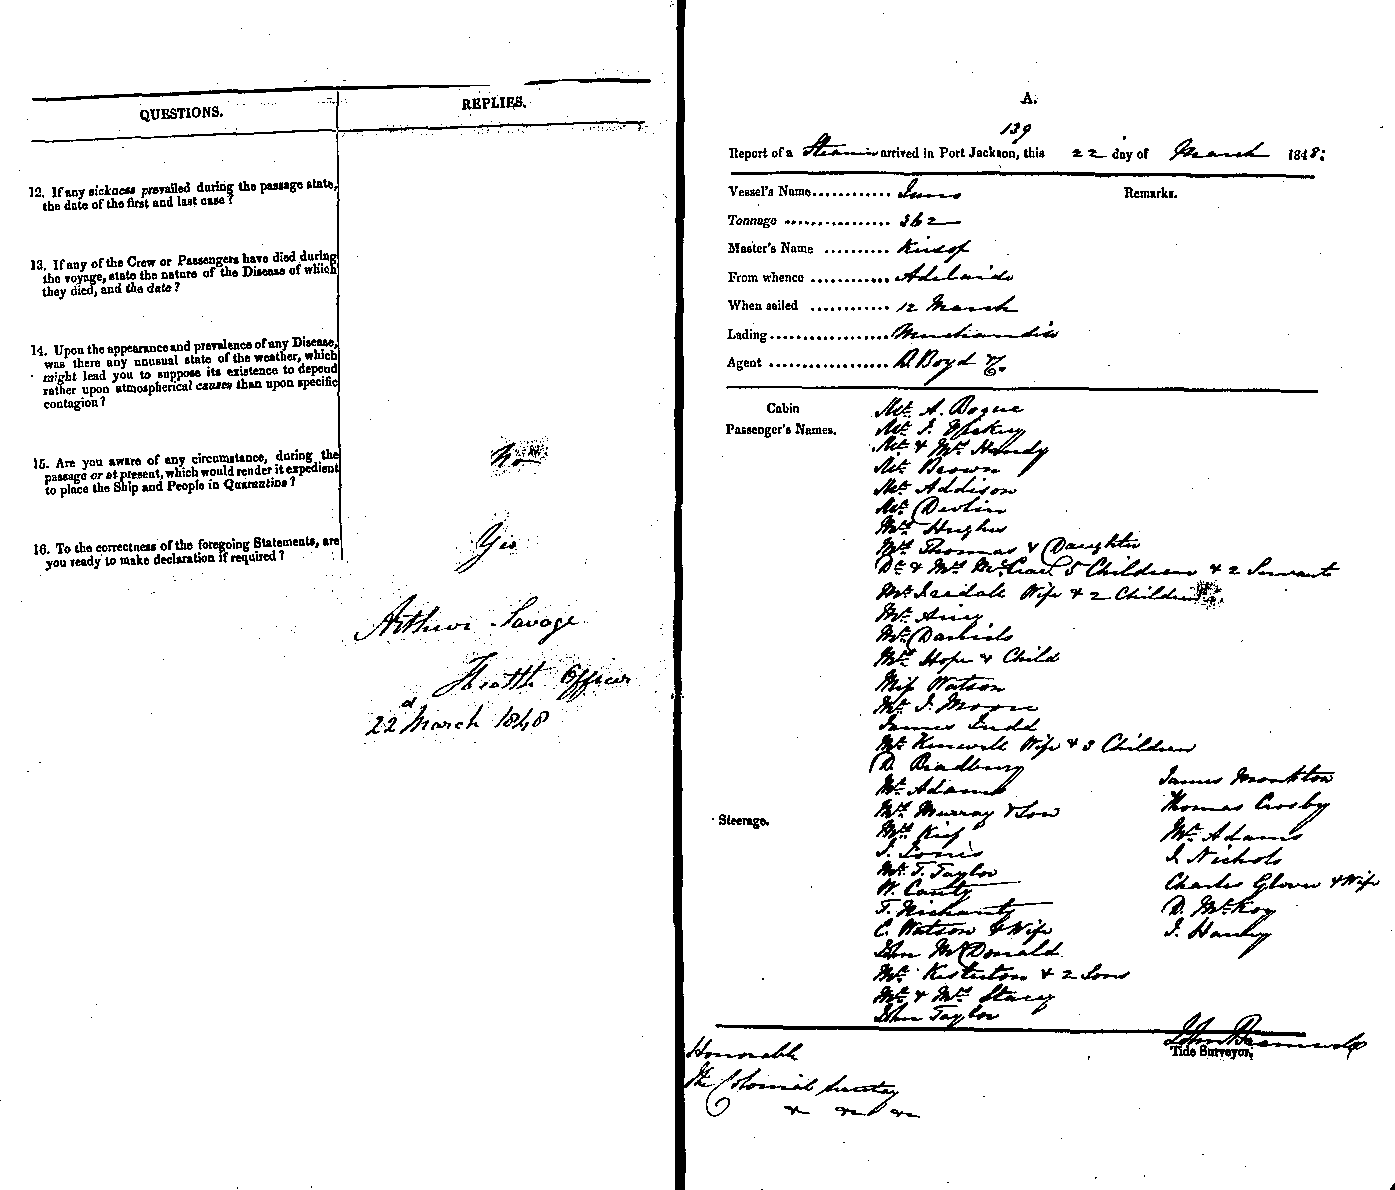 QUESTIONS.
REPLIES.
12. If any sickness prevailed during the passage state,
the date of the first and last case?
13. If any of the Crew or Passengers have died during
the voyage, state the nature of the Disease of which
they died, and the date?
14. Upon the appearance and prevalence of any Disease,
was there any unusual state of the weather, which
might lead you to suppose its existence to depend
rather upon atmospherical causes than upon specific
contagion?
15. Are you aware of any circumstance, during the
passage or at present, which would render it expedient
to place the Ship and People in Quarantine?
No
16. To the correctness of the foregoing Statements, are
you ready to make declaration if required?
Yes
Arthur Savage
Health Officer
22d March 1848
A.
139
Report of a Steamer arrived in Port Jackson, this 22 day of March 1848:
Vessel's Name............ Juno
Remarks.
Tonnage ................ 362
Master's Name .......... 
From whence ............ Adelaide
When sailed ............ 12 March
Lading................... Merchandise
Agent ................... B Boyd & Co.
Cabin
Passenger's Names.
Mr. A. Bogue
Mr. J.
Mr. & Mrs. Handy
Mr. Brown
Mr. Addison
Mr. Devlin
Mrs. Hughes
Mrs. Thomas & Daughter
Dr. & Mrs. 5 Children & 2 Servants
Mr. Wife & 2 Children
Mr.
Mr. Daniels
Mrs. Hope & Child
Miss Watson
Mr. J. Moore
James Judd
Mr. Wife & 3 Children
D. Bradbury
Mr. Adams
Steerage.
Mrs. Murray & Son
Mrs.
J.
Mr. T. Taylor
W. Canty
T.
C. Watson & Wife
John McDonald
Mr. & 2 Sons
Mr. & Mrs. Stacey
John Taylor
James Monkton
Thomas Crosby
Mr. Adams
J. Nichols
Charles Glover & Wife
D. McKoy
J.
John
Tide Surveyor.
Honorable
The Colonial Secretary
& &c &c